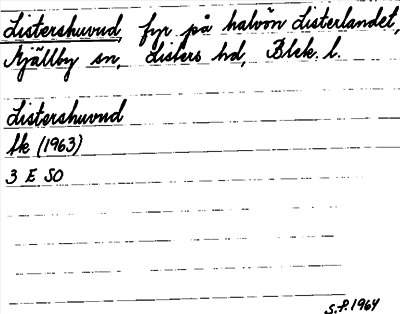 Listershuvud, fyr på halvön Listerlandet,
Mjällby sn, Listers hd, Blek. l.
Listershuvud
Sk (1963)
3 E SO
S.P. 1964